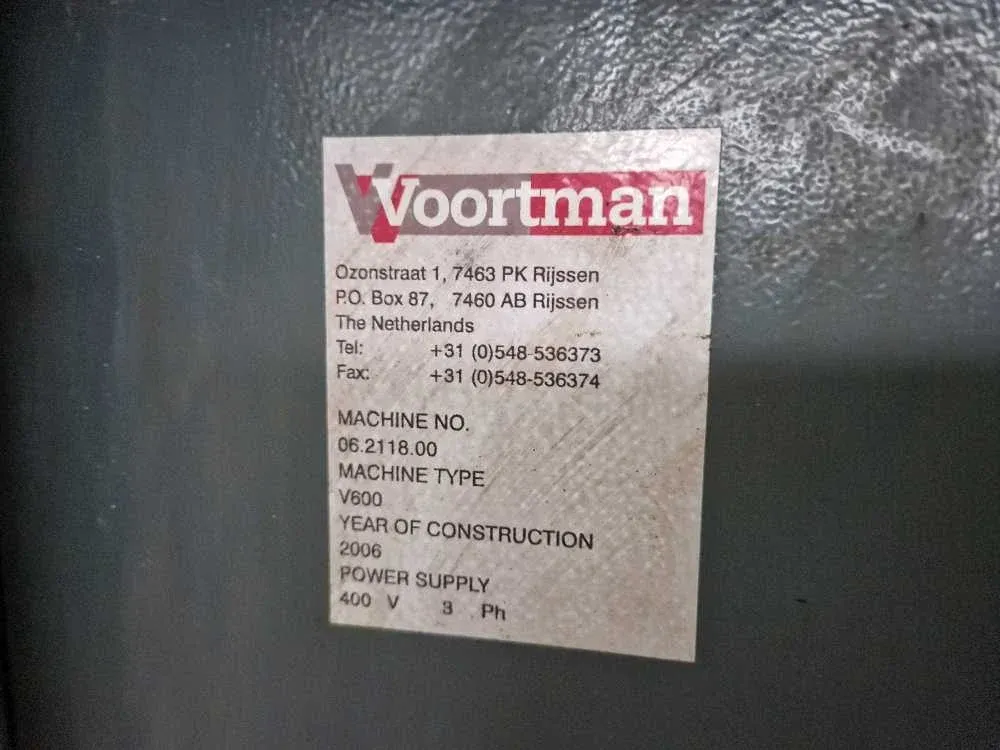 Voortman
Ozonstraat 1, 7463 PK Rijssen
P.O. Box 87, 7460 AB Rijssen
The Netherlands
Tel: +31 (0)548-536373
Fax: +31 (0)548-536374
MACHINE NO.
06.2118.00
MACHINE TYPE
V600
YEAR OF CONSTRUCTION
2006
POWER SUPPLY
400 V 3 Ph